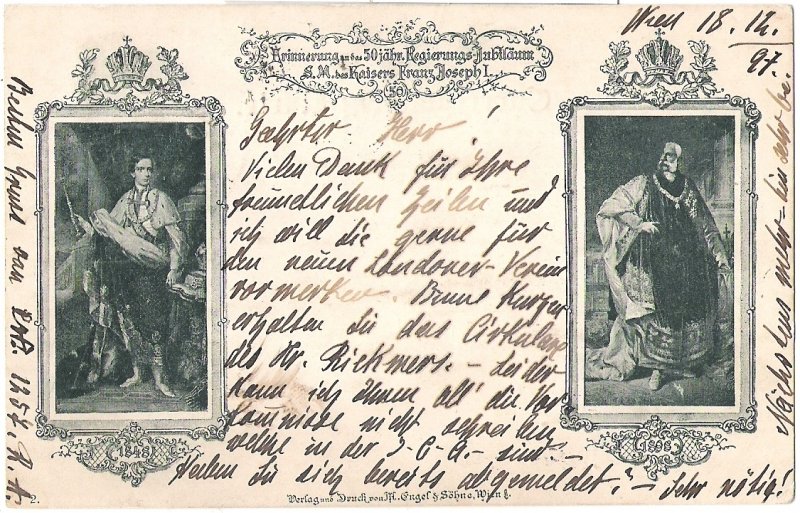 Wien 18. 12.
97.
Erinnerung an das 50jähr. Regierungs-Jubiläum
S. M. des Kaisers Franz Joseph I.
50
Geehrter Herr!
Vielen Dank für Ihre
freundlichen Zeilen und
ich will Sie gerne für
den neuen Londoner-Verein
vormerken. Binne Kurzen
erhalten Sie das Cirkular
des Hr. Rickmers. – Leider
kann ich Ihnen all' die Vor-
kommnisse nicht schreiben
welche in der I-C-A- sind –
Haben Sie sich bereits abgemeldet? – Sehr nötig!
Nächstens mehr – bin sehr be
Besten Gruss von
1848
1898
2.
Verlag und Druck von M. Engel & Söhne, Wien